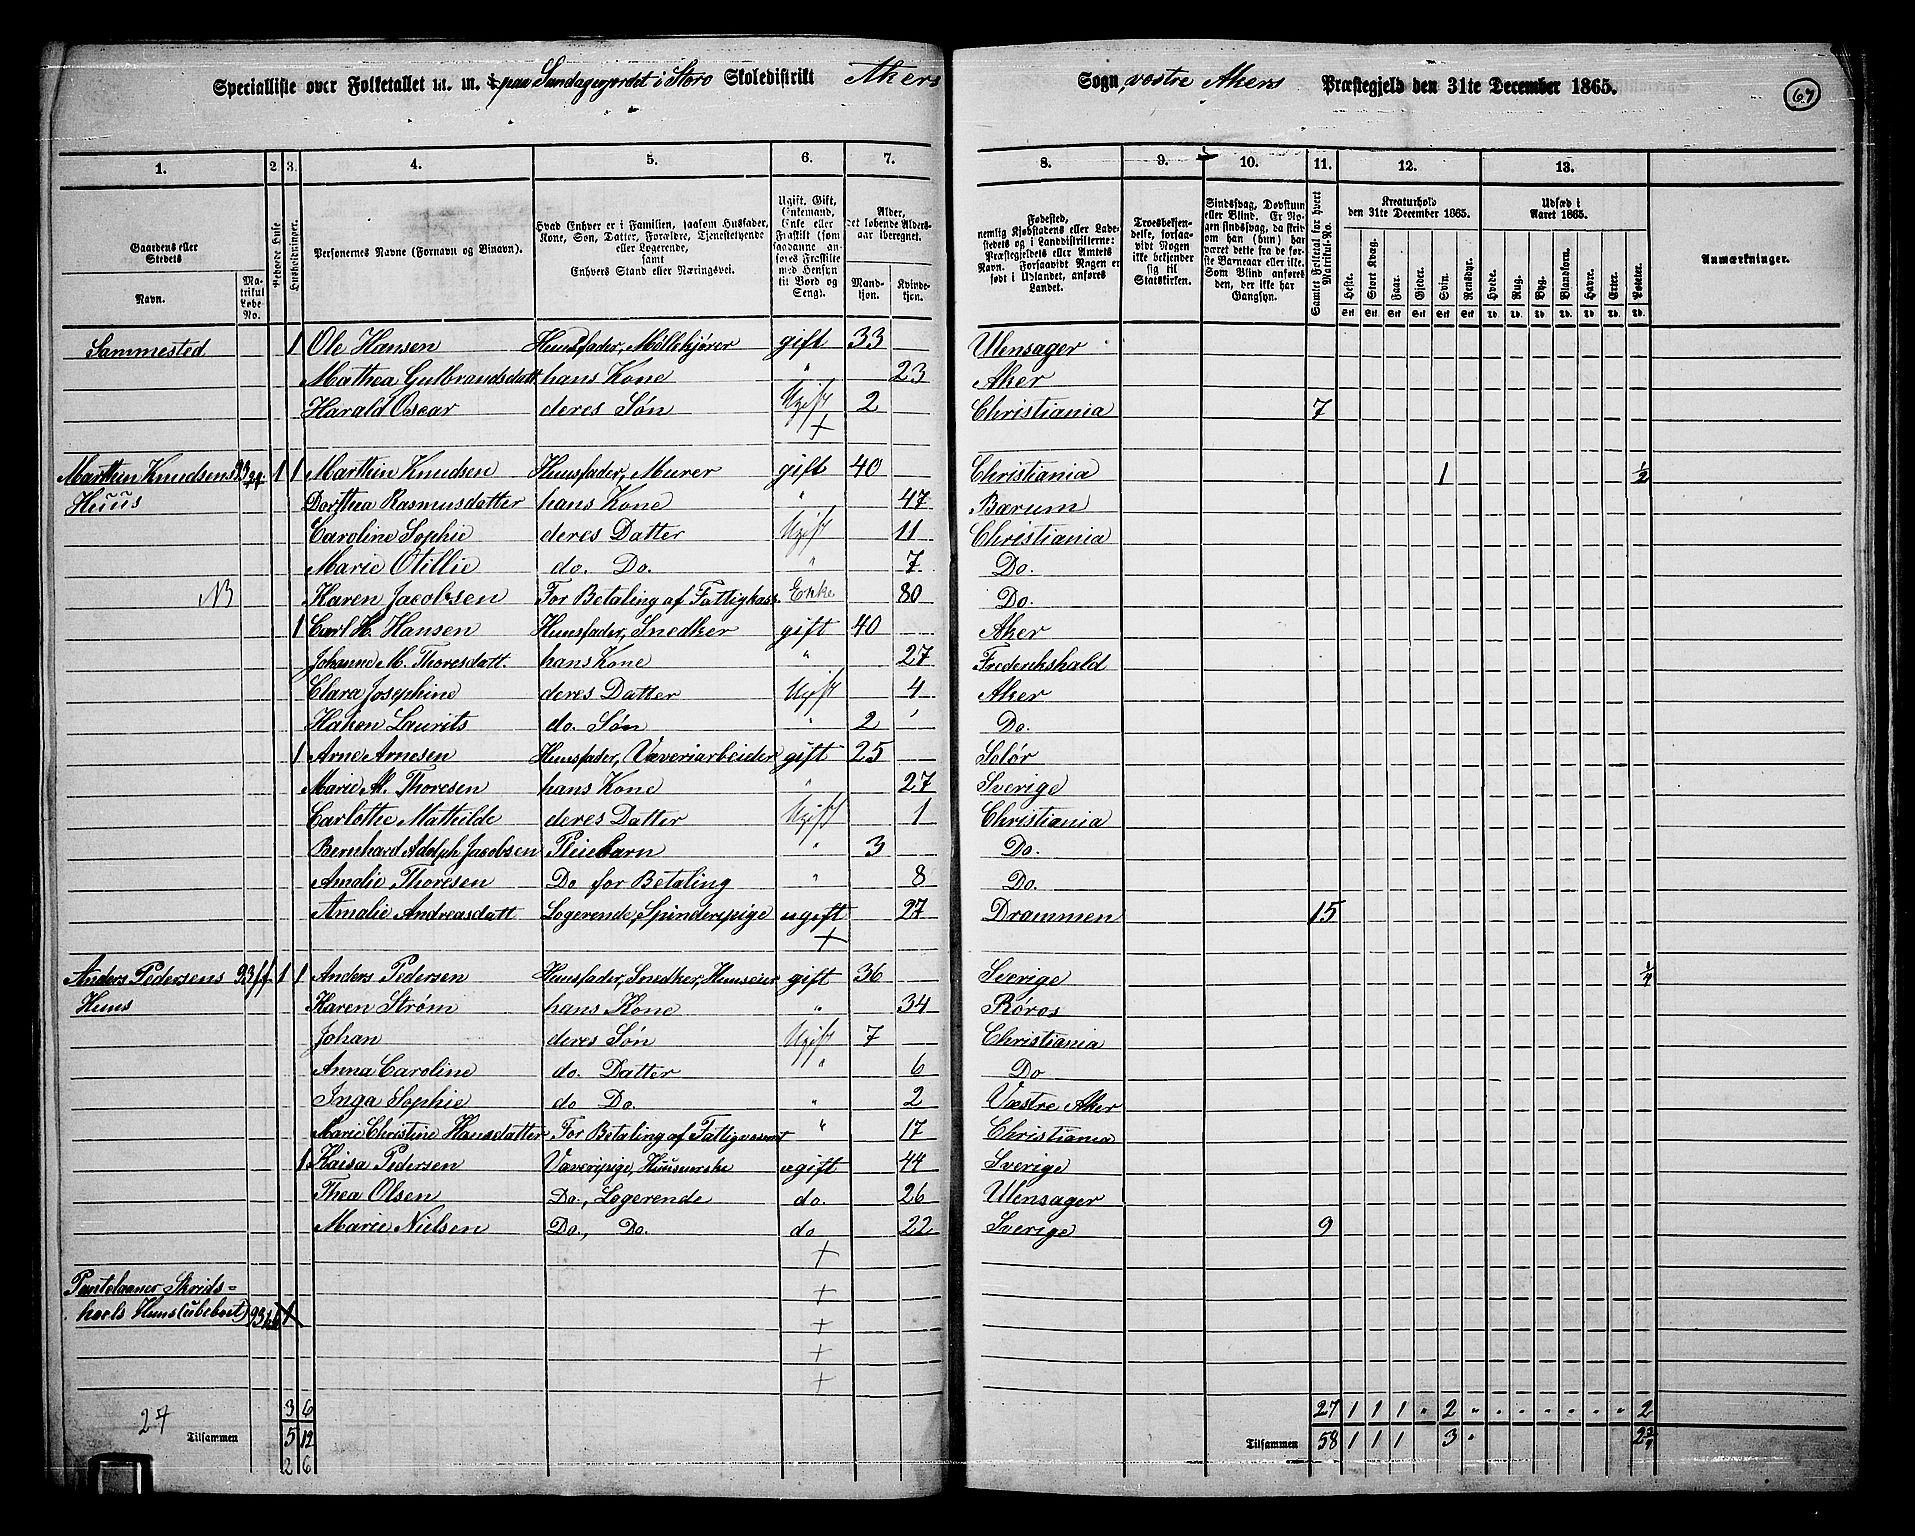 Specialliste over Folketallet m. m. paa Sandagerjordet i Storo Skoledistrikt Akers Sogn, vestre Akers Præstegjeld den 31te December 1865. 67
1. 2. 3. 4. 5. 6. 7. 8. 9. 10. 11. 12. 13.
Gaardens eller Stedets Navn. Matrikul Løbe-No. Beboede Huse Husholdninger. Personernes Navne (Fornavn og Binavn). Hvad Enhver er i Familien, saasom Husfader, Kone, Søn, Datter, Forældre, Tjenestetyende eller Logerende, samt Enhvers Stand eller Næringsvei. Ugift, Gift, Enkemand, Enke eller Fraskilt (som saadanne anføres Fraskilte med Hensyn til Bord og Seng). Alder, det løbende Alders-aar iberegnet. Mand-kjøn. Kvinde-kjøn.
Fødested, nemlig Kjøbstadens eller Ladestedets og i Landdistrikterne: Præstegjeldets eller Amtets Navn. Forsaavidt Nogen er født i Udlandet, anføres Landet. Troesbekjendelse, forsaavidt Nogen ikke bekjender sig til Statskirken. Sindssvag, Døvstum eller Blind. Er Nogen sindssvag, da skrives om han (hun) har været dette fra de første Barneaar eller ikke. Som Blind anføres den, der ikke har Gangsyn. Samlet Folketal for hvert Matrikul-No. Kreaturhold den 31te December 1865. Heste. Stort Kvæg. Faar. Gjeder. Svin. Rensdyr. Udsæd i Aaret 1865. Hvede. Rug. Byg. Blandkorn. Havre. Erter. Poteter. Anmærkninger.
Sammested 1 Ole Hansen Huusfader, Møllekjører gift 33 Ulensager
Mathea Gulbrandsdatt hans Kone " 23 Aker
Harald Oscar deres Søn Ugift 2 Christiania 7
Marthin Knudsens 93 1 1 Marthin Knudsen Huusfader, Murer gift 40 Christiania 1 1/2
Huus Dorthea Rasmusdatter hans Kone " 47 Bærum
Caroline Sophie deres Datter Ugift 11 Christiania
Marie Otillie do. Do. " 7 Do.
NB Karen Jacobsen For Betaling af Fattigkass. Enke 80 Do.
1 Carl H. Hansen Huusfader, Snedker gift 40 Aker
Johanne M. Thoresdatt. hans Kone " 27 Frederikshald
Clara Josephine deres Datter Ugift 4 Aker
Haken Laurits do. Søn " 2 Do.
1 Arne Arnesen Huusfader, Væveriarbeider gift 25 Solør
Marie M. Thoresen hans Kone " 27 Sverige
Carlotte Mathilde deres Datter Ugift 1 Christiania
Bernhard Adolph Jacobsen Pleiebarn " 3 Do.
Amalie Thoresen Do for Betaling " 8 Do.
Amalie Andreasdatt Logerende, Spinderpige ugift 27 Drammen 15
Anders Pedersens 93 1 1 Anders Pedersen Huusfader, Snedker, Huuseier gift 36 Sverige 1/4
Huus Karen Strøm hans Kone " 34 Røros
Johan deres Søn Ugift 7 Christiania
Anna Caroline do. Datter " 6 Do
Inga Sophie do Do. " 2 Vestre Aker
Marie Christine Hansdatter For Betaling af Fattigvæsent " 17 Christiania
1 Kaisa Pedersen Væveripige, Huusmoder ugift 44 Sverige
Thea Olsen Do., Logerende do 26 Ulensager
Marie Nielsen Do., Do. do 22 Sverige 9
Pantelaaner Skrids-
hoels Huus (ubeboet) 93
3 6 27 1 1 1 2 2
27 Tilsammen 5 12 Tilsammen 58 1 1 1 3 2 3/4
2 6